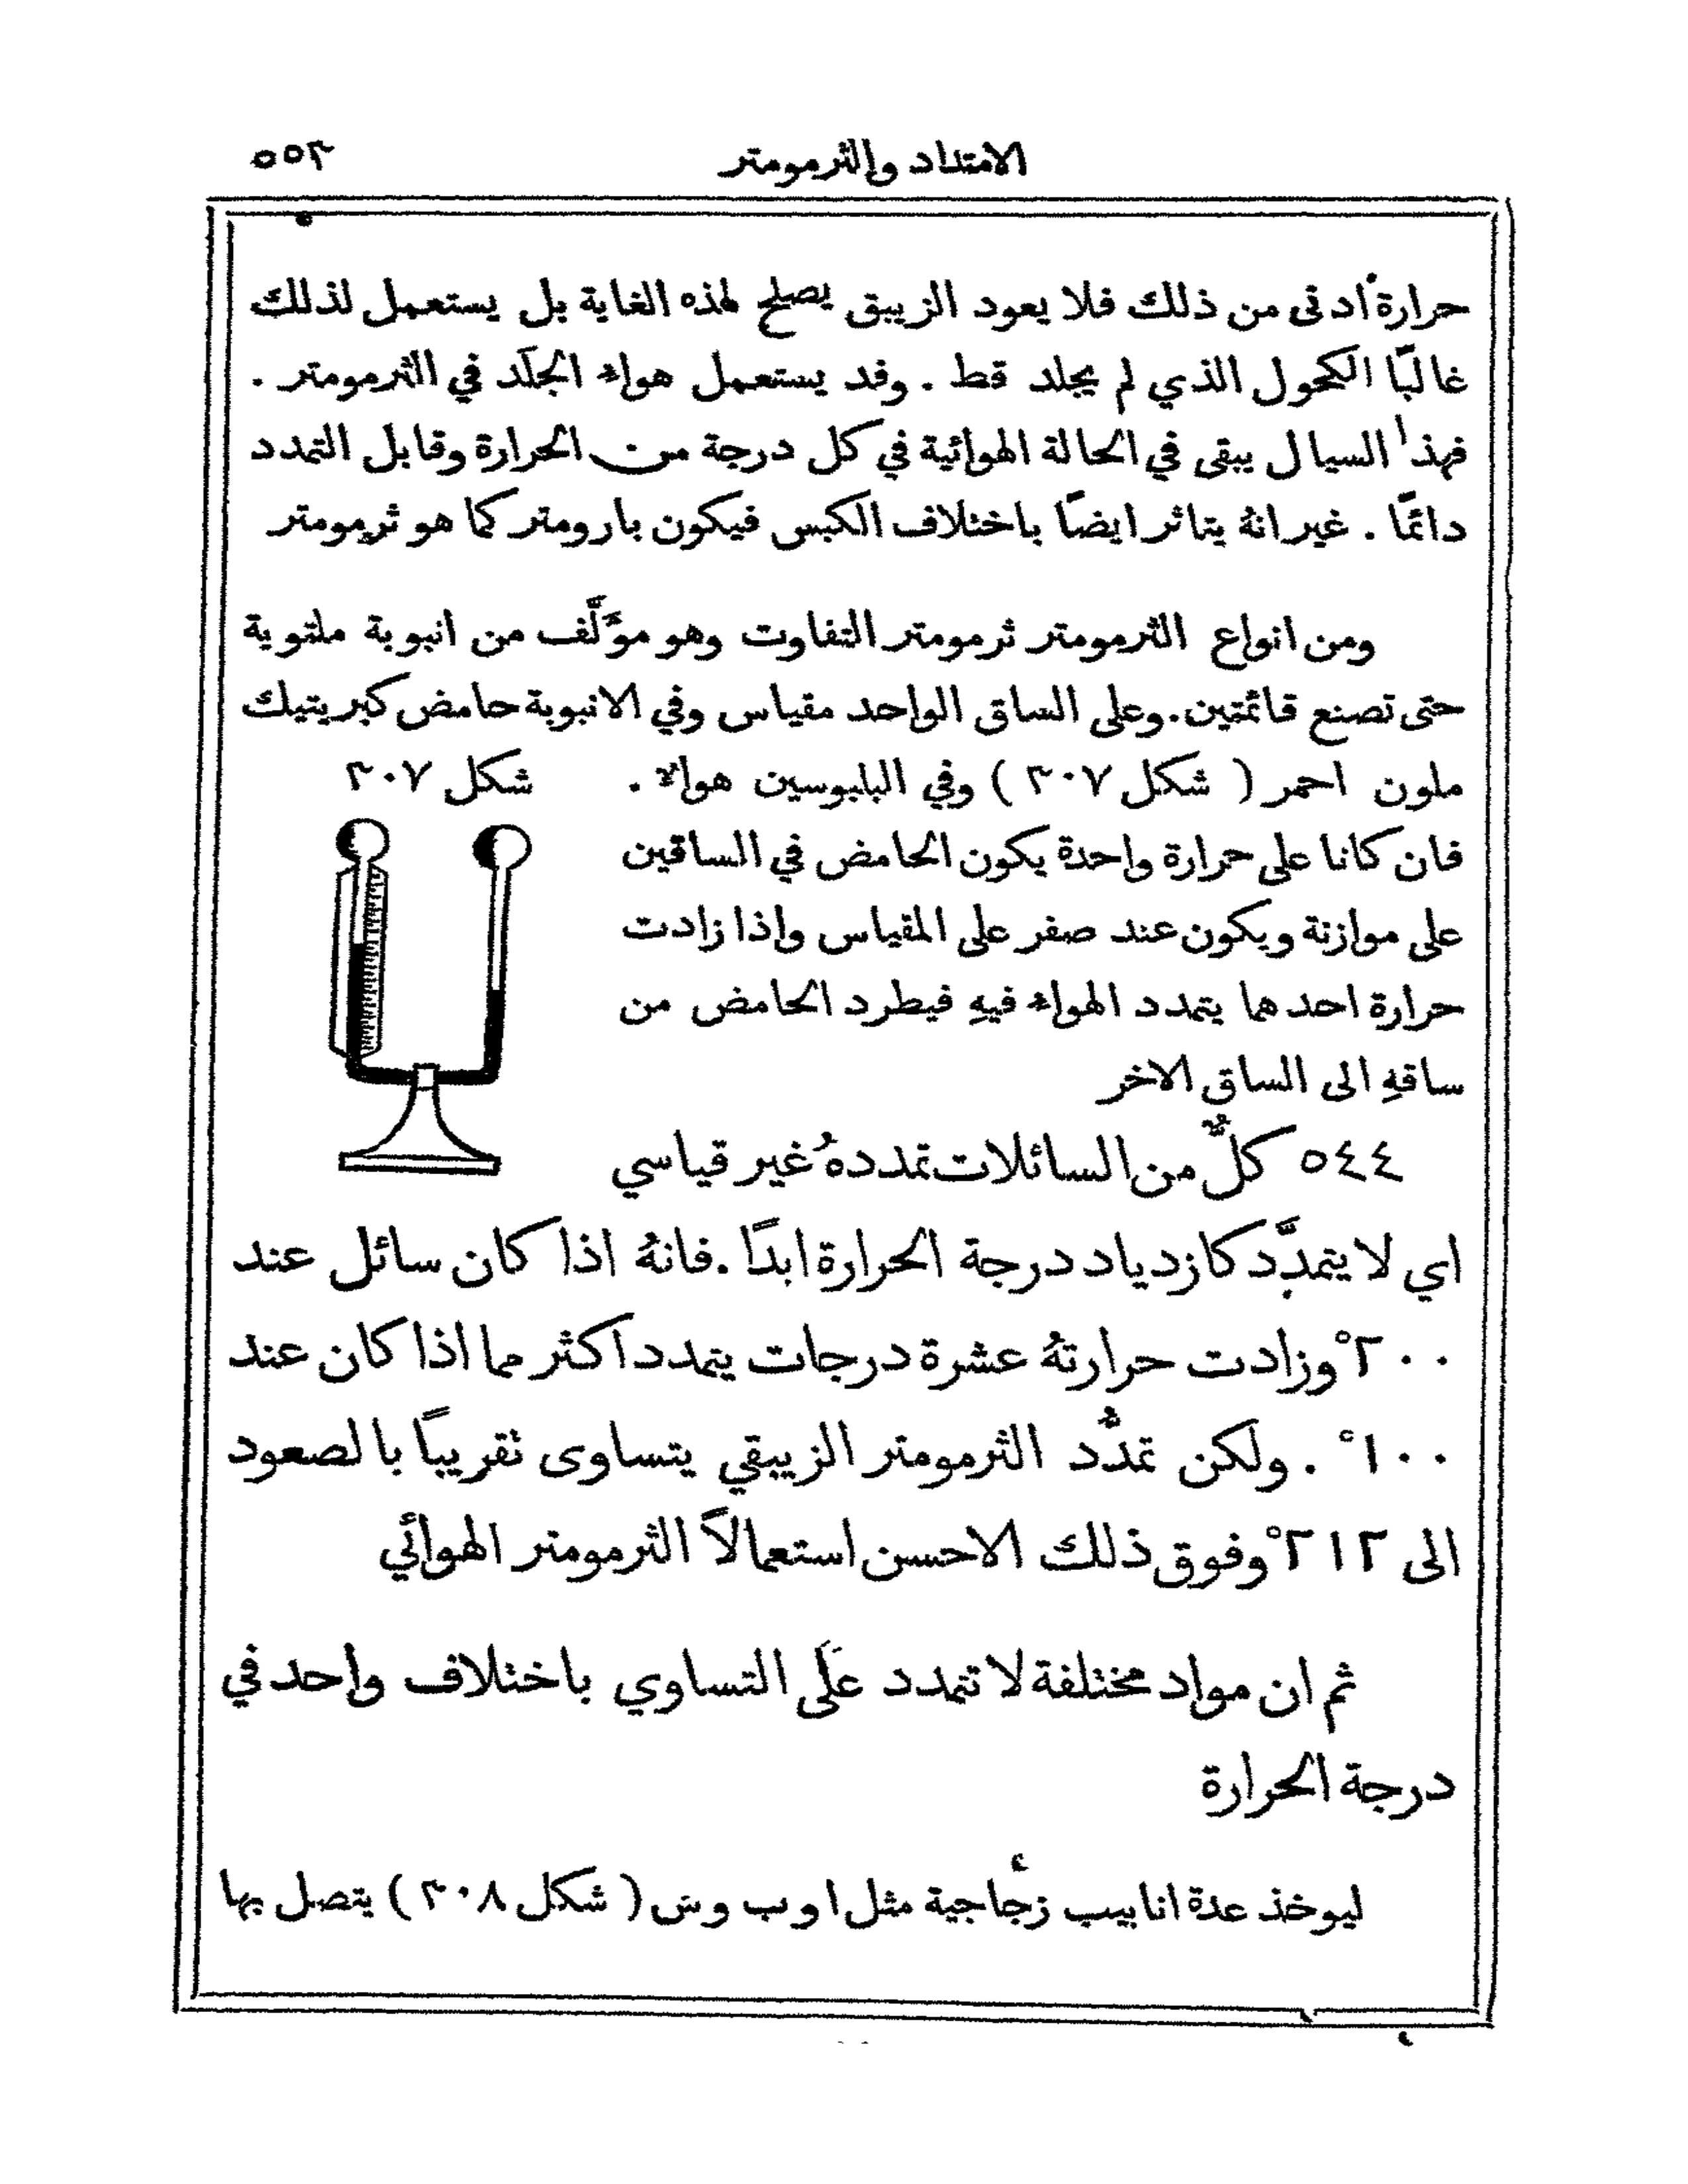 الامتداد والثرمومتر
٥٥٣
حرارة ادنى من ذلك فلا يعود الزيبق يصلح لهذه الغاية بل يستعمل لذلك
غالبًا الكحول الذي لم يجلد قط . وقد يستعمل هواء الجَلَد في الثرمومتر .
فهذا السيال يبقى في الحالة الهوائية في كل درجة من الحرارة وقابل التمدد
دائمًا . غير انهُ يتاثر ايضًا باختلاف الكبس فيكون بارومتر كما هو ثرمومتر
ومن انواع الثرمومتر ثرمومتر التفاوت وهو مؤَلَّف من انبوبة ملتوية
حتى تصنع قائمتين . وعلى الساق الواحد مقياس وفي الانبوبة حامض كبريتيك
ملون احمر ( شكل ٣٠٧ ) وفي البلبوسين هواء .
شكل ٣٠٧
فان كانا على حرارة واحدة يكون الحامض في الساقين
على موازنة ويكون عند صفر على المقياس واذا زادت
حرارة احدهما يتمدد الهواء فيهِ فيطرد الحامض من
ساقهِ الى الساق الاخر
٥٤٤ كلٌّ من السائلات تمددهُ غير قياسي
اي لا يتمدَّد كازدياد درجة الحرارة ابدًا . فانهُ اذا كان سائل عند
٢٠٠° وزادت حرارتهُ عشرة درجات يتمدد اكثر مما اذا كان عند
١٠٠° . ولكن تمدُّد الثرمومتر الزيبقي يتساوى تقريبًا بالصعود
الى ٢١٢° وفوق ذلك الاحسن استعمالاً الثرمومتر الهوائي
ثم ان مواد مختلفة لا تتمدد عَلَى التساوي باختلاف واحد في
درجة الحرارة
ليوخذ عدة انابيب زجاجية مثل ا وب وس ( شكل ٣٠٨ ) يتصل بها